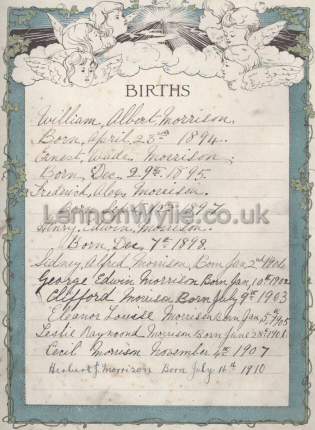 BIRTHS
William Albert Morrison.
Born, April 23rd 1894.
Ernest, Wade Morrison;
Born, Dec. 29th. 1895.
Frederick, Alex, Morrison.
Born 1897
LennonWylie.co.uk
Henry, Edwin, Morrison.
Born, Dec, 7th 1898.
Sidney Alfred Morrison, Born Jan, 2nd
George Edwin Morrison Born Jan, 10th 1902
Clifford Morrison Born July 9th 1903
Eleanor Louise Morrison Born Jan, 5th 1905
Leslie Raymond Morrison Born June 28th
Cecil Morrison November 4th 1907
Herbert J. Morrison Born July 11th 1910